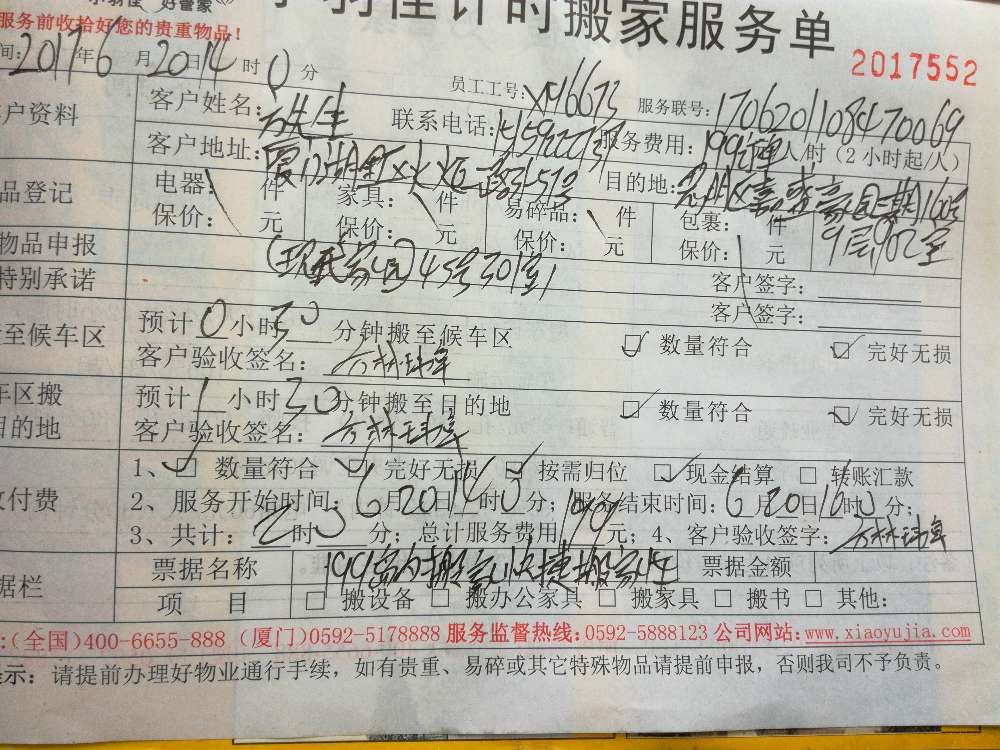 好管家
计时搬家服务单
服务前收拾好您的贵重物品!
2017552
间: 2017年6月20日14时0分
员工工号: XM6673
服务联号: 170620110847 0069
户资料
客户姓名:
先生
联系电话:
服务费用: 199/ 人/时 (2小时起/人)
客户地址: 厦门湖 区火炬路 51号
目的地:
160号
9层902室
品登记
电器: 件
家具: 件
易碎品: 件
包裹: 件
保价: 元
保价: 元
保价: 元
保价: 元
物品申报
45号301室
客户签字:
特别承诺
客户签字:
至候车区
预计0小时30分钟搬至候车区
数量符合
完好无损
客户验收签名: 方林
车区搬
目的地
预计1小时30分钟搬至目的地
数量符合
完好无损
客户验收签名: 方林
付费
1、 数量符合 完好无损 按需归位 现金结算 转账汇款
2、服务开始时间: 6月20日14时0分; 服务结束时间: 6月20日16时0分;
3、共计: 2时0分; 总计服务费用199元; 4、客户验收签字: 方林
据栏
票据名称
199岛内搬家/快捷搬家
票据金额
项 目
搬设备 搬办公家具 搬家具 搬书 其他:
:(全国)400-6655-888 (厦门)0592-5178888 服务监督热线:0592-5888123 公司网站:www.xiaoyujia.com
示: 请提前办理好物业通行手续,如有贵重、易碎或其它特殊物品请提前申报,否则我司不予负责。